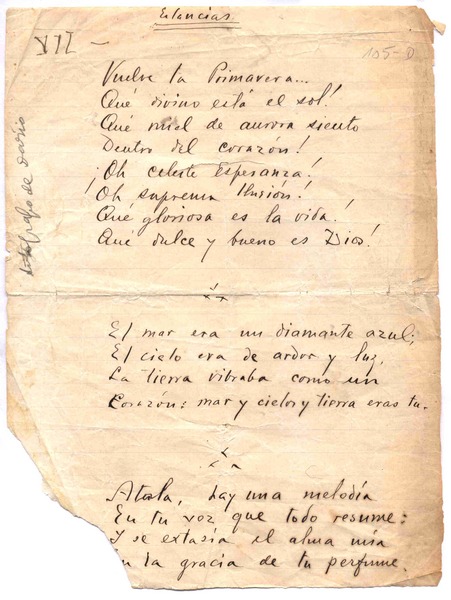 Estancias
VII —
105-0
Autógrafo de Darío
Vuelve la Primavera...
Qué divino está el sol!
Qué miel de aurora siento
Dentro del corazón!
¡Oh celeste Esperanza!
¡Oh suprema Ilusión!
¡Qué gloriosa es la vida!
Qué dulce y bueno es Dios!
El mar era un diamante azul;
El cielo era de ardor y luz,
La tierra vibraba como un
Corazón: mar y cielos y tierra eras tu.
Atala, hay una melodía
En tu voz, que todo resume:
Y se extasía el alma mía
En la gracia de tu perfume.